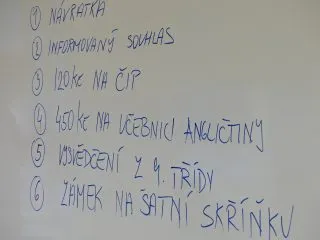 1 NÁVRATKA
2 INFORMOVANÝ SOUHLAS
3 120 KČ NA ČIP
4 450 KČ NA UČEBNICI ANGLIČTINY
5 VYSVĚDČENÍ Z 4. TŘÍDY
6 ZÁMEK NA ŠATNÍ SKŘÍŇKU